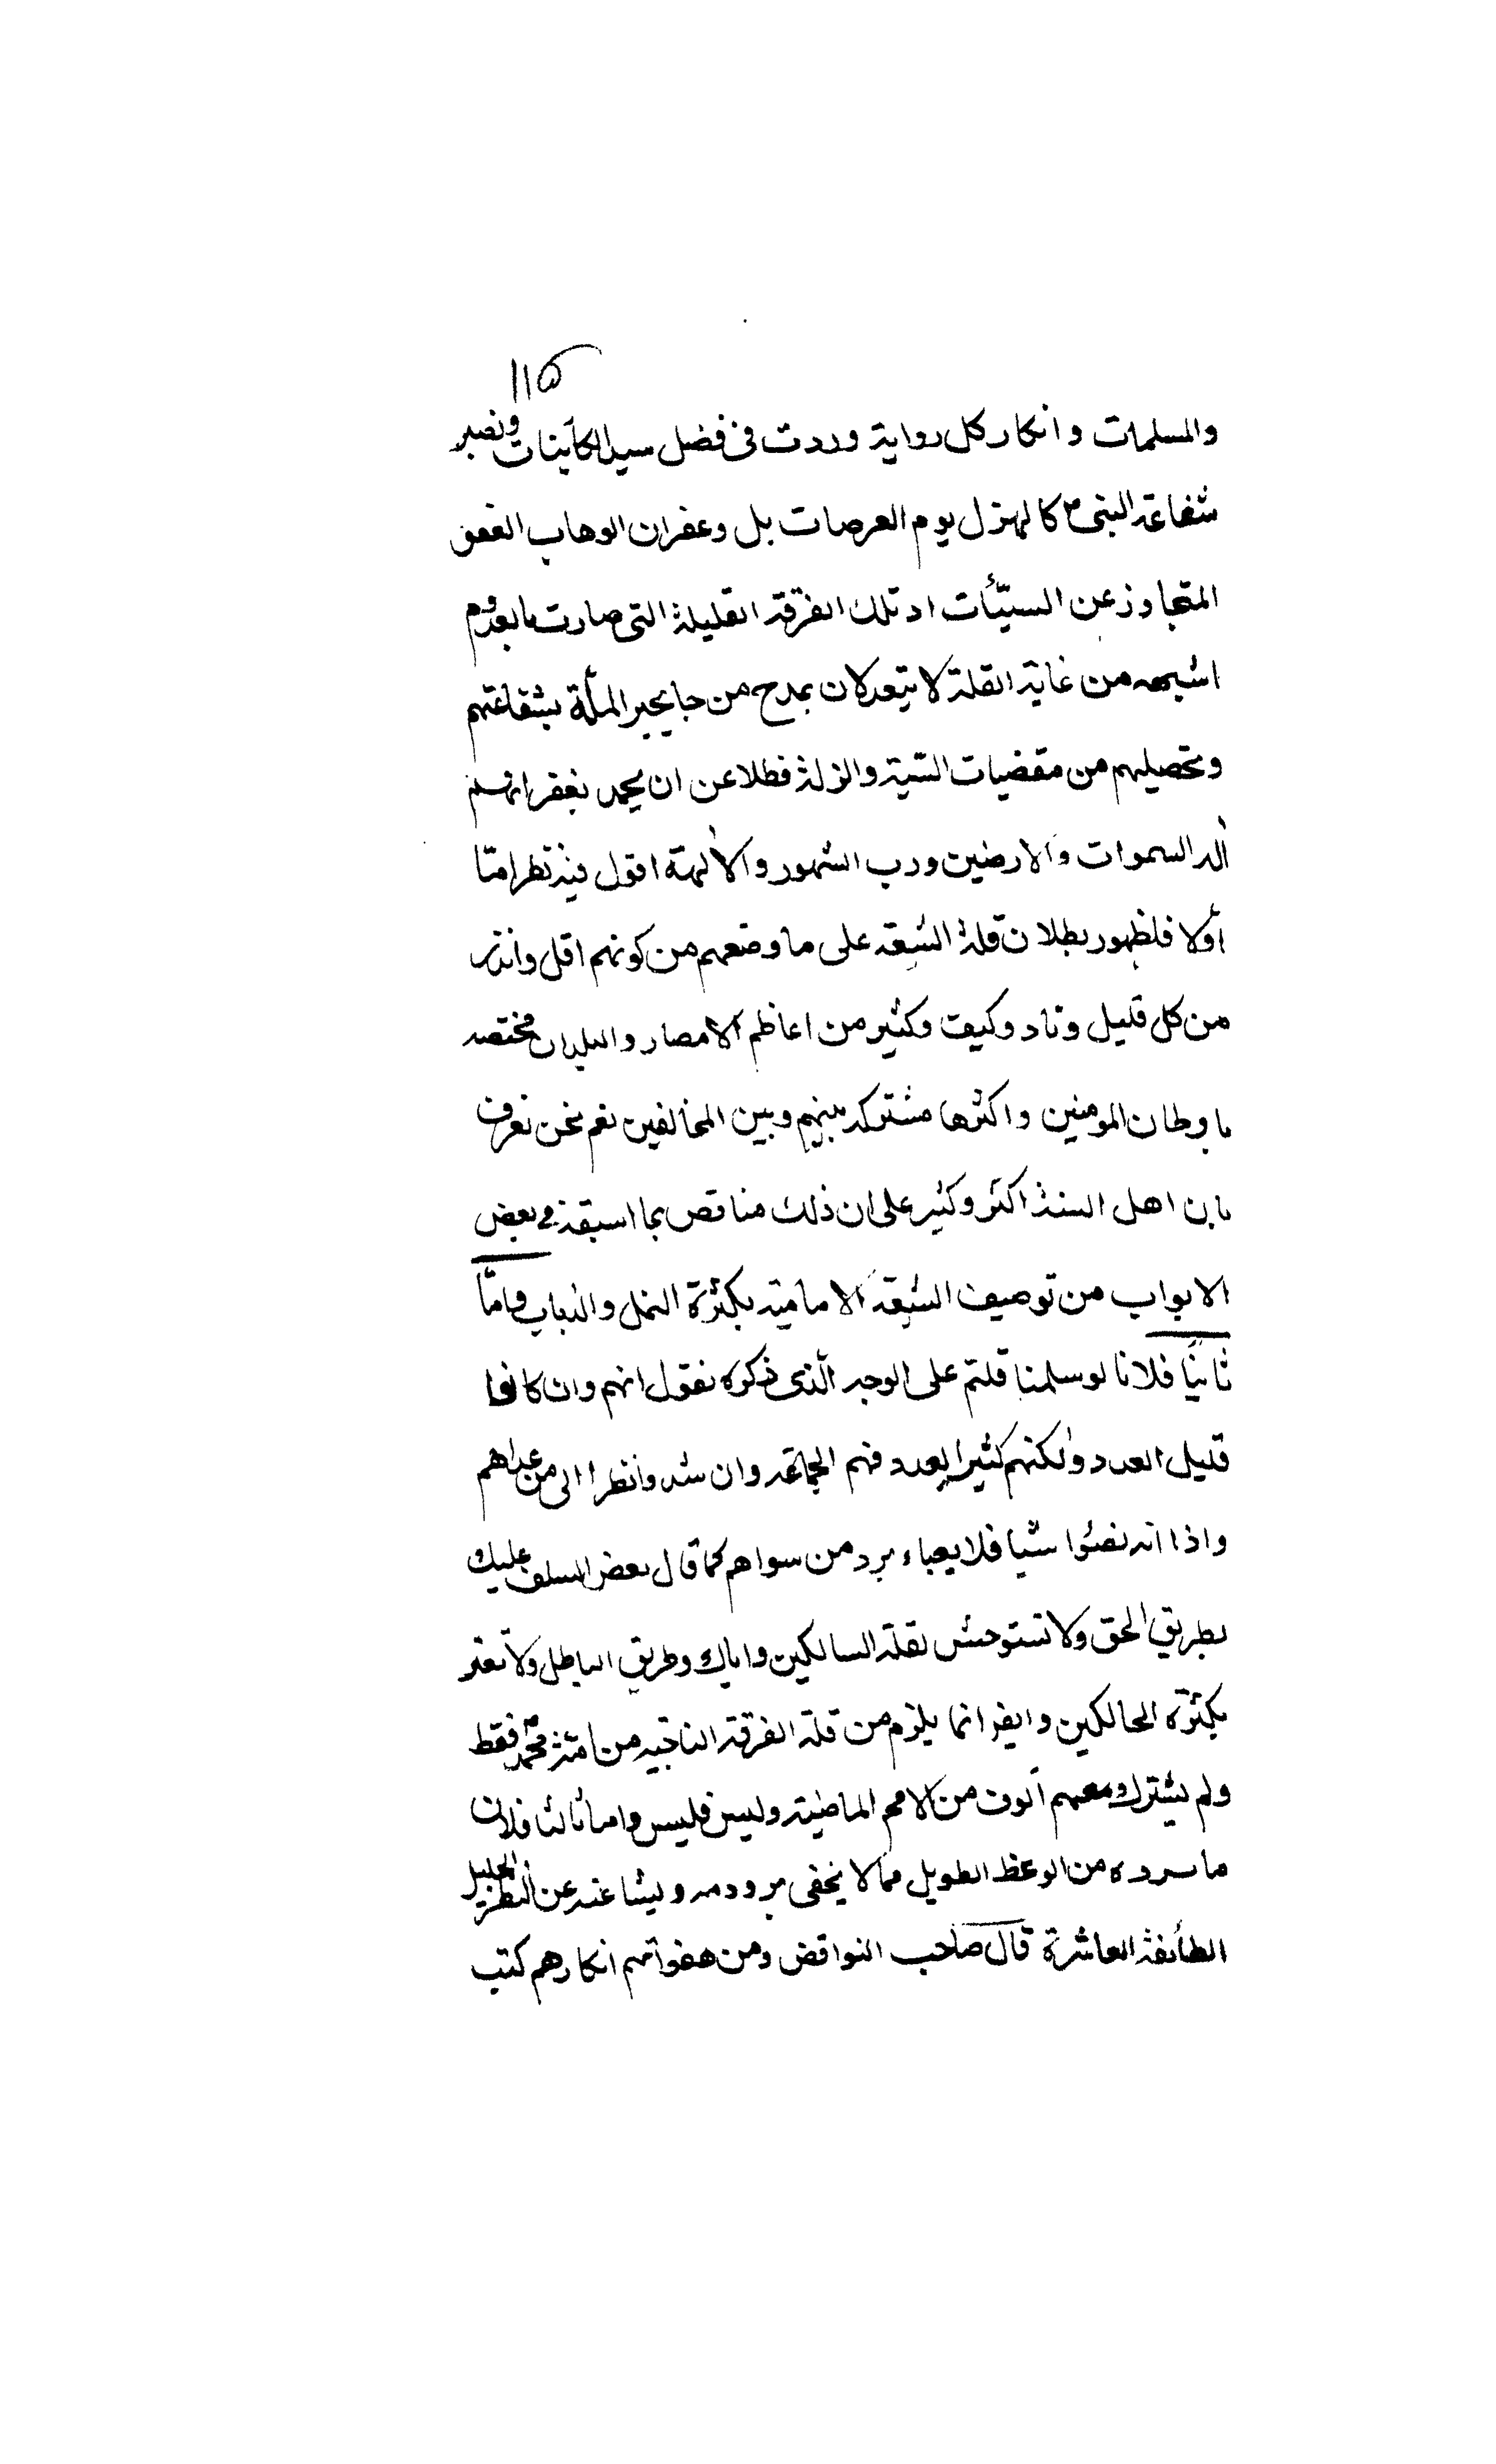 ١١٥
والمسلمات وانكار كل رواية وردت فى فضل سيد الكائنات ونصير
شفاعة النبى كالهزل يوم العرصات بل وغفران الوهاب الغفور
المتجاوز عن السيّأت اذ تلك الفرقة القليلة التى صارت بالعدوم
اشبه من غاية القلة لا يتعدلان بمدح من جا بشفاعتهم
وتحصيلهم من مقضيات والزلة فطلا عن ان يحمد بغفرانهم
اله السموات والارضين ورب الشهور والالهة اقول فيه نظر امّا
اولا فلظهور بطلان قلة الشيعة على ما وضعهم من كونهم اقل واندر
من كل قليل وناد وكيف وكثير من اعاظم الامصار والبلدان مختصه
باوطان المومنين واكثرها مشتركه بينهم وبين المخالفين نعم نحن نعرف
بان اهل السنة اكثر وكثير على ان ذلك مناقض بما اسبقه فى بعض
الابواب من توصيف الشيعة الامامية بكثرة النمل والذباب وامّا
ثانيًا فلانا لو سلمنا قلتم على الوجه الّذى ذكره نقول انهم وان كانوا
قليل العدد ولكنهم كثير المدد فهم الجماعة وان شذوا نظرا الى من عداهم
واذا انه نصوا شيا فلا يعباء برد من سواهم كما قال بعض السلف عليك
بطريق الحق ولا تستوحش بقلة السالكين واياك وطريق الباطل ولا تغتر
بكثرة الهالكين وايضا انما يلزم من قلة الفرقة الناجيه من امّة محمّد فقط
ولم يشترك معهم الوف من الامم الماضية وليس فليس واما ثالثا فلان
ما سرده من الوعظ الطويل مما لا يخفى برودته وبشاعته عن النظر الجليل
الطائفة العاشرة قال صاحب النواقض ومن هفواتهم انكارهم كتب